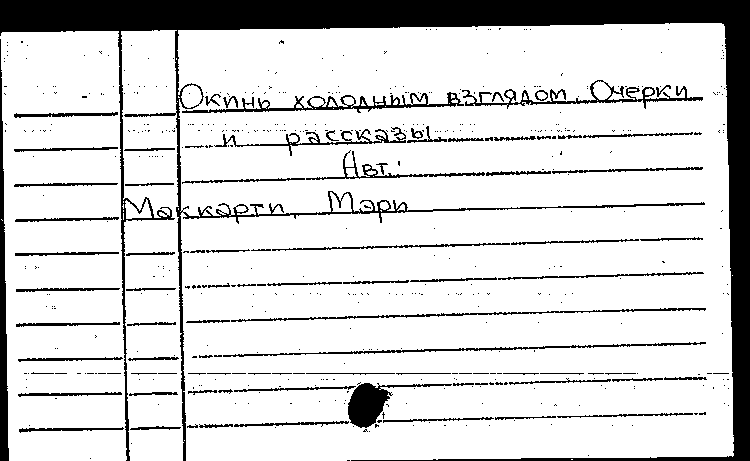 Окинь холодным взглядом. Очерки
и рассказы.
Авт.:
Маккарти, Мэри